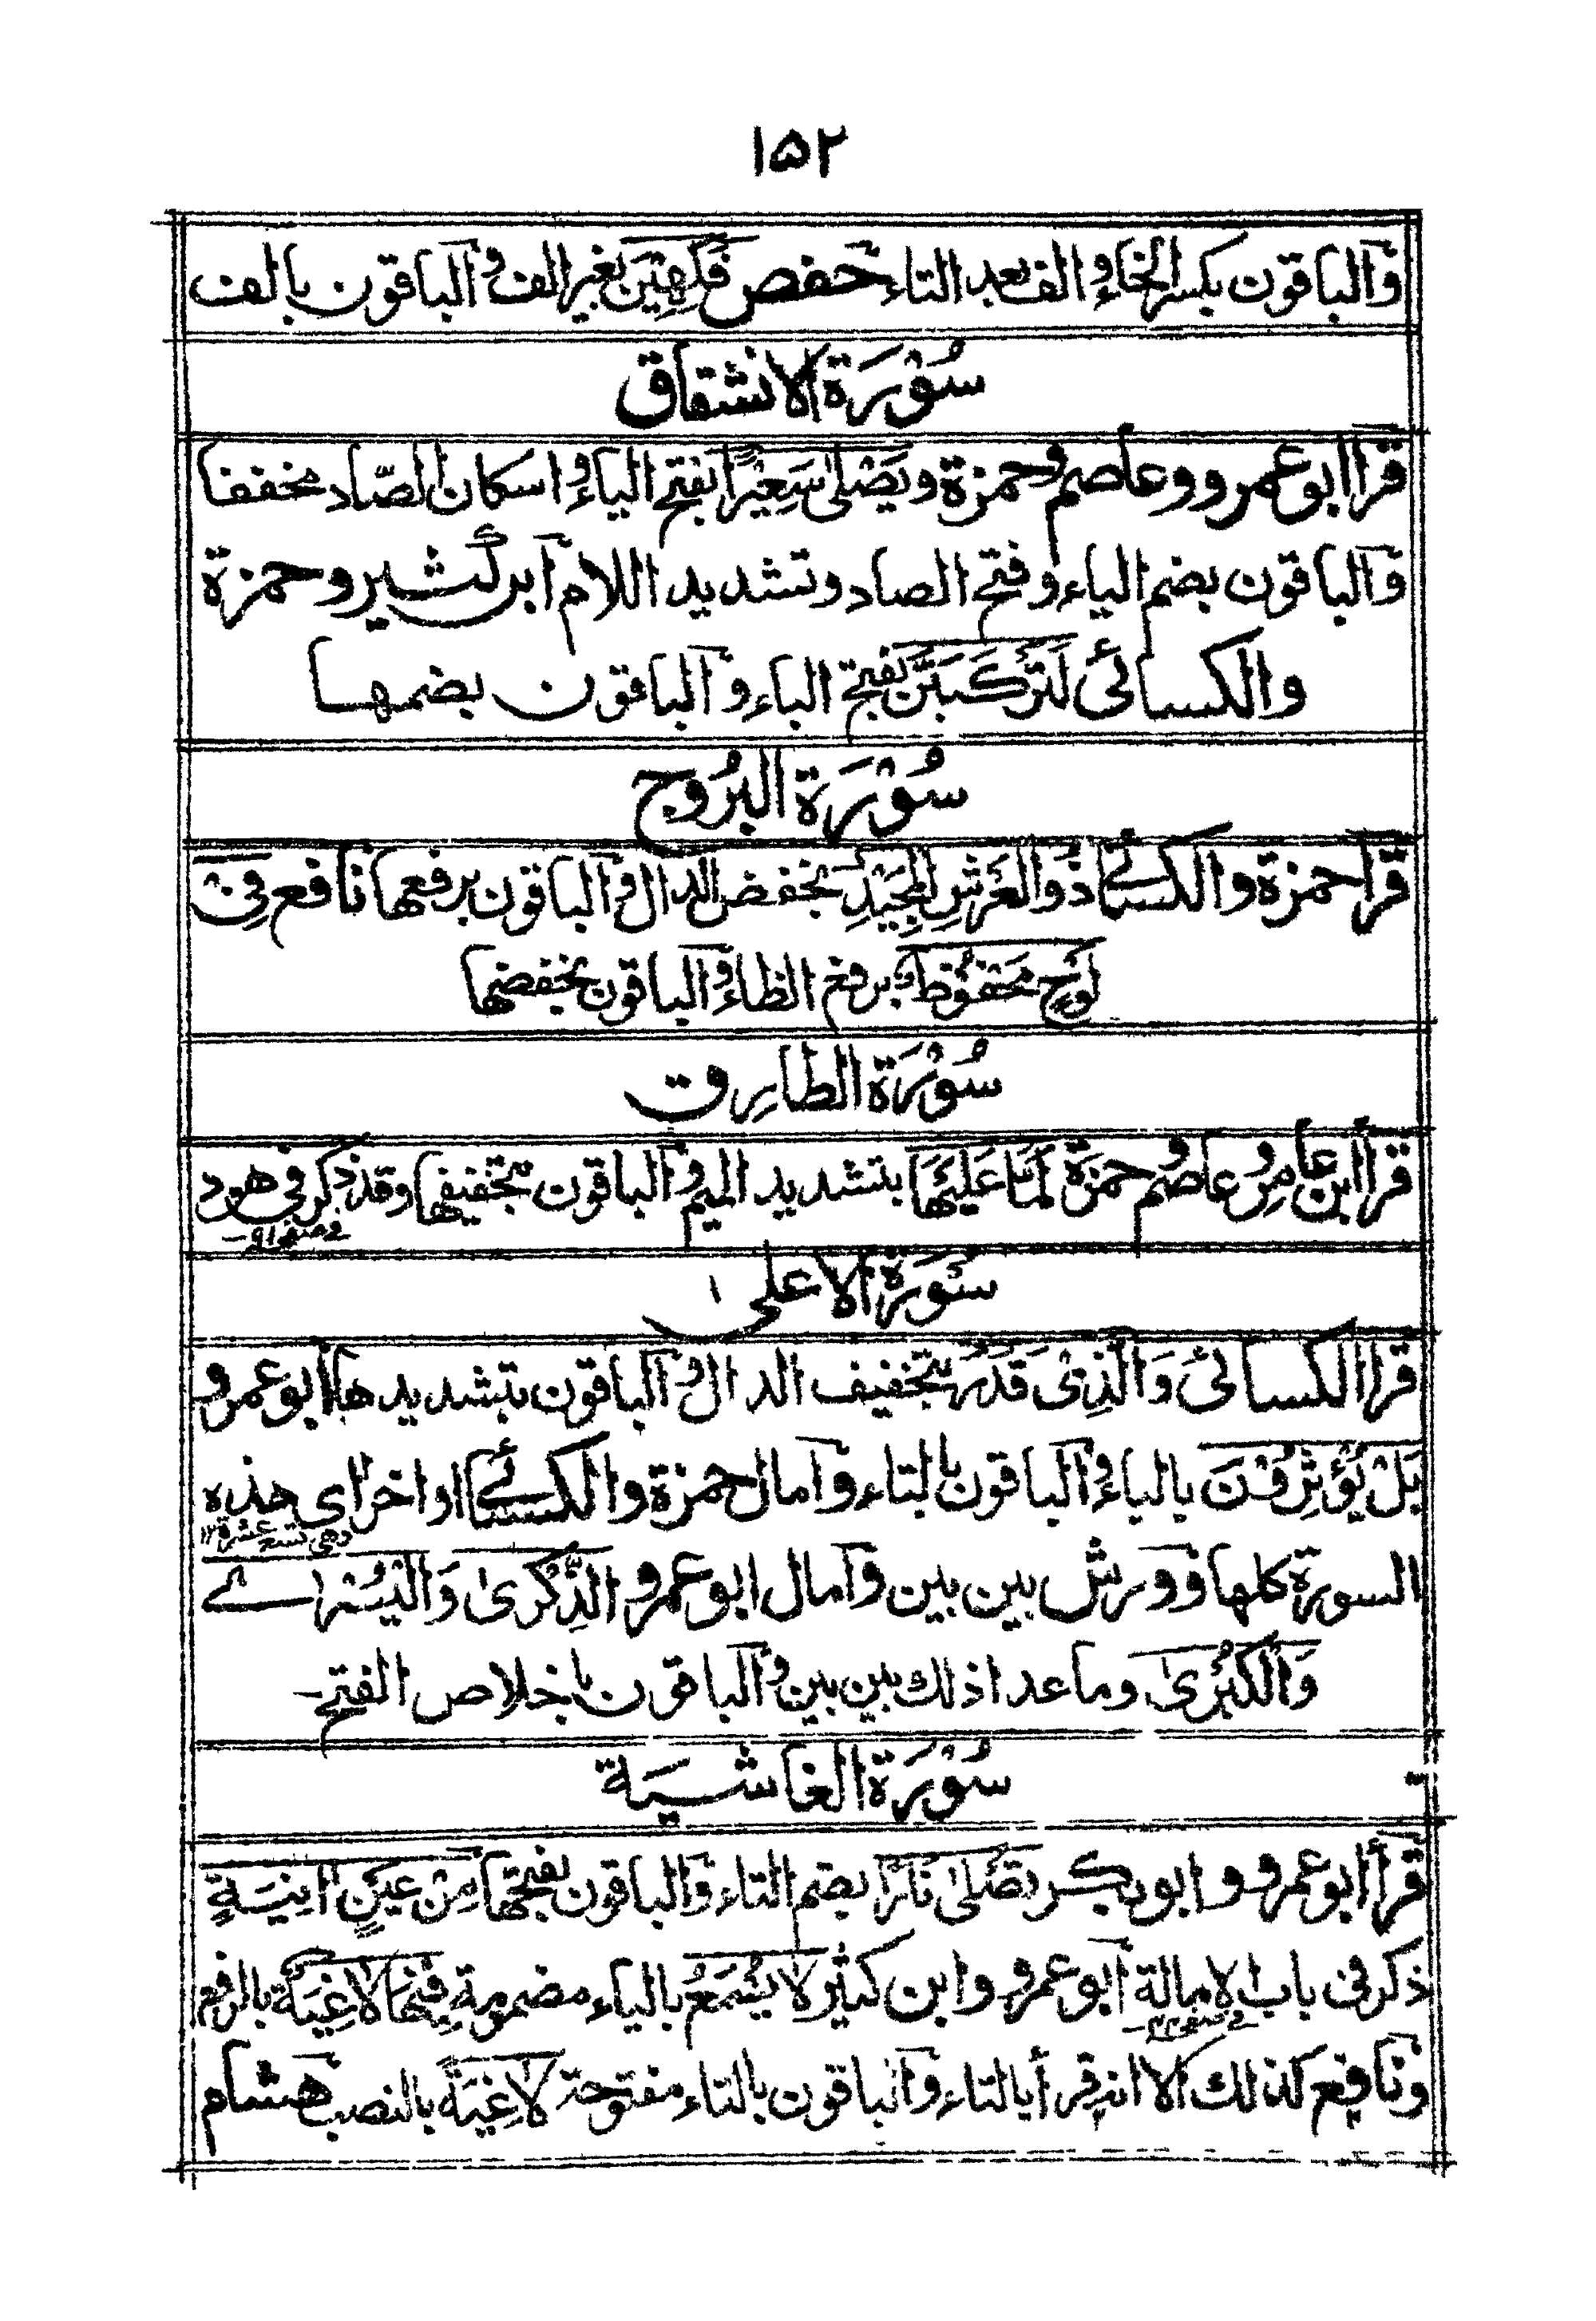 ١۵٢
والباقون بكسر الخاء والف بعد التاء حفص فَكِهِيْنَ بغير الف والباقون بالف
سُوْرَة الانشقاق
قرا ابو عمرو وعاصم وحمزة ويَصْلىٰ سَعِيْرًا بفتح الياء واسكان الصّاد مخففا
والباقون بضم الياء وفتح الصاد وتشديد اللام ابن كثير وحمزة
والكسائى لَتَرْكَبَنَّ بفتح الباء والباقون بضمها
سُوْرَة البُرُوج
قرا حمزة والكسائے ذُو الْعَرْشِ المَجِيْدِ بخفض الدال والباقون برفعها نافع فِىْ
لَوْحٍ مَحْفُوْظٌ برفع الظاء والباقون بخفضها
سُوْرَة الطارِق
قرا ابن عامر وعاصم وحمزة لَمَّا عَلَيْهَا بتشديد الميم والباقون بتخفيفها وقد ذكر فى هود
فے صفحه ٩١-
سُوْرَة الاعلى
قرا الكسائى وَالَّذِىْ قَدَرَ بتخفيف الدال والباقون بتشديدها ابو عمرو
بَلْ يُؤْثِرُوْنَ بالياء والباقون بالتاء وامال حمزة والكسائے اواخر اى هذه
وهى تسعة عشرة ١٢
السورة كلها وورش بين بين وامال ابو عمرو الذِّكْرىٰ وَالْيُسْرٰے
وَالْكُبْرىٰ وما عدا ذلك بين بين والباقون باخلاص الفتح-
سُوْرَة الغاشيَة
قرأ ابو عمرو وابو بكر تُصْلىٰ نَارًا بضم التاء والباقون بفتحها مِنْ عَيْنٍ اٰنِيَةٍ
ذكر فى باب الامالة ابو عمرو وابن كثير لَا يُسْمَعُ بالياء مضمومة فِيْهَا لَاغِيَةٌ بالرفع
ونافع كذلك الا انه قرأ بالتاء والباقون بالتاء مفتوحة لَاغِيَةً بالنصب هشام